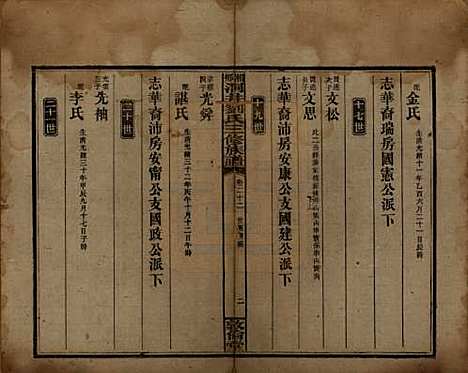 配
金氏
生清光緒十一年乙酉六月二十一日時
十七世
志華裔瑞房國憲公派下
貫通
文松
貫通
文思
志華裔沛房安康公支國建公派下
十九世
光舜
配
諶氏
生清光緒三十二年丙午十月十二日午時
志華裔沛房安甯公支國政公派下
二十世
光信
三子
先袖
配
李氏
生清光緒三十年甲辰九月十七日子時
二十一世
洞井劉氏三修族譜
卷二十二
二
敦倫堂